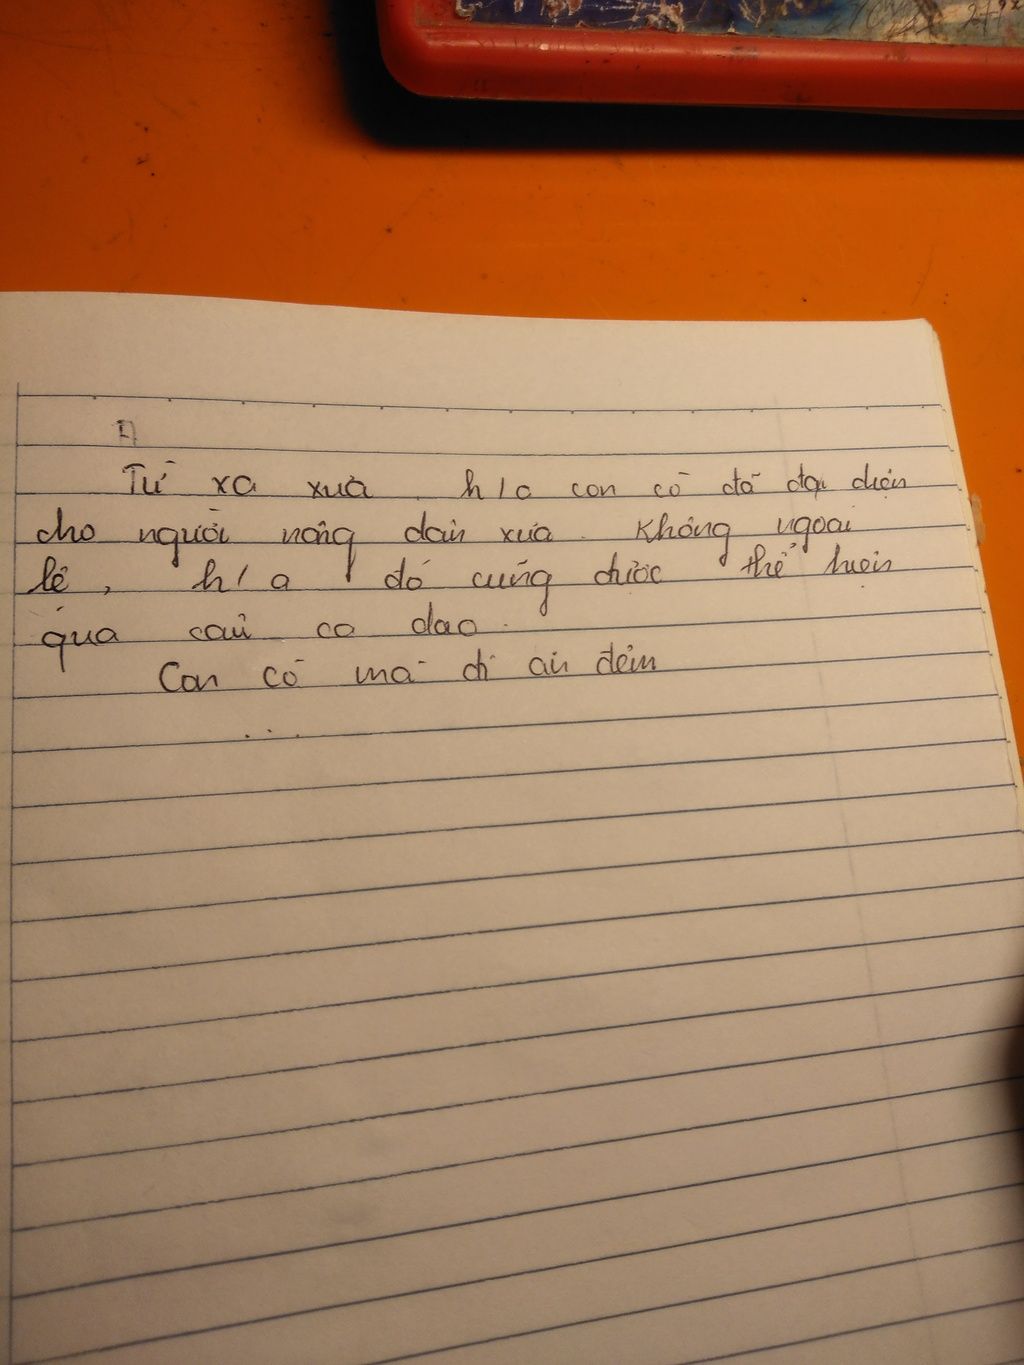 Từ xa xưa, h/a con cò đã đại diện
cho người nông dân xưa. Không ngoại
lệ, h/a đó cũng được thể hiện
qua câu ca dao.
Con cò mà đi ăn đêm
...